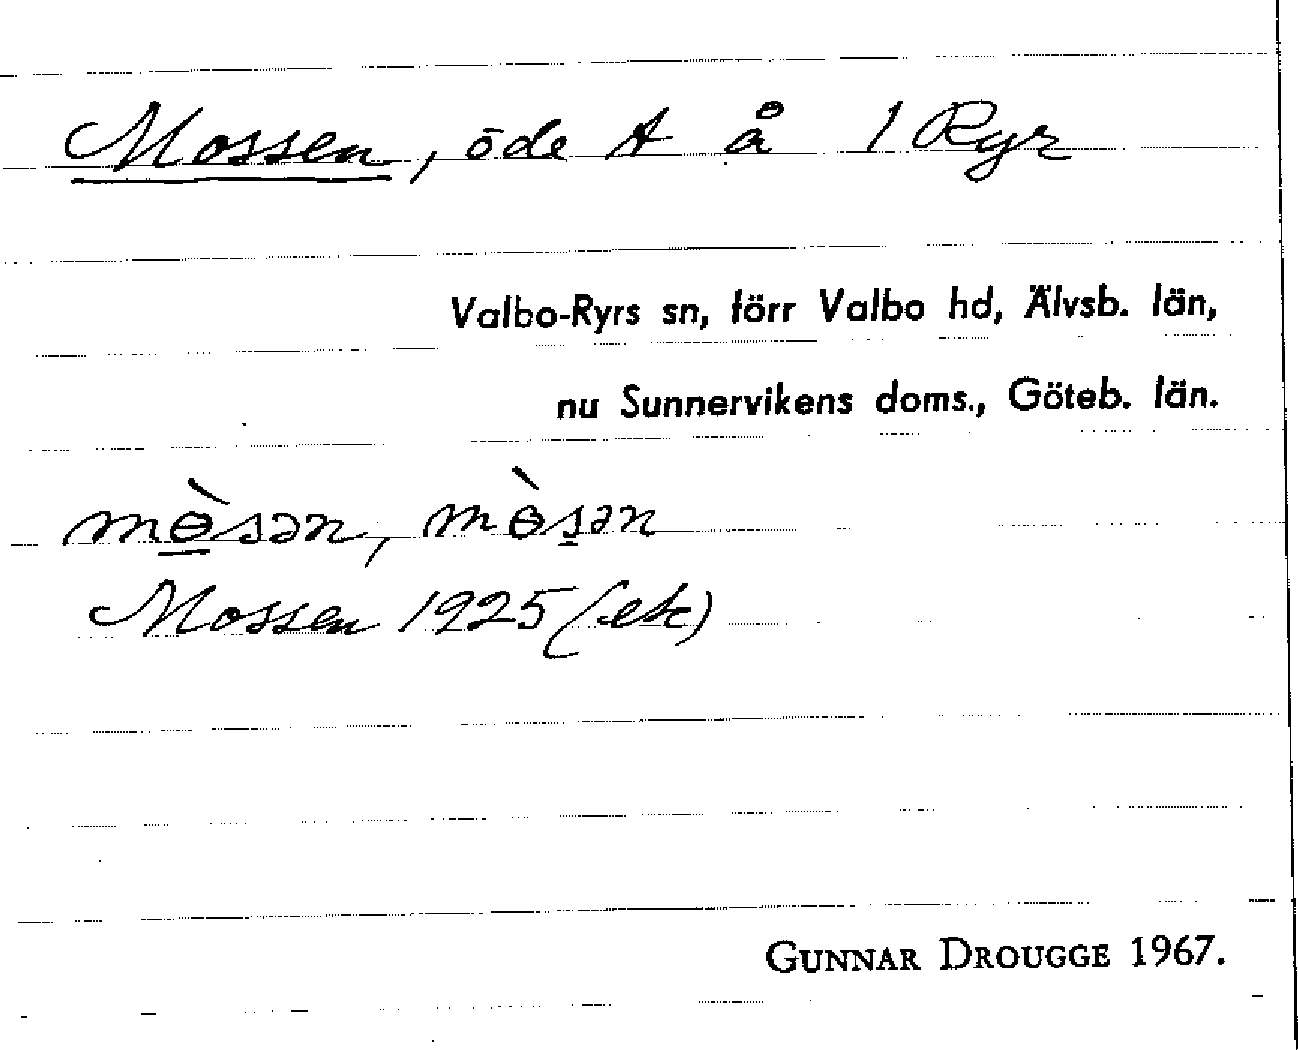 Mossen, öde t å 1 Ryr
Valbo-Ryrs sn, förr Valbo hd, Älvsb. län,
nu Sunnervikens doms., Göteb. län.
mɵ̀sən, mɵ̀sən
Mossen 1925 (ek)
GUNNAR DROUGGE 1967.